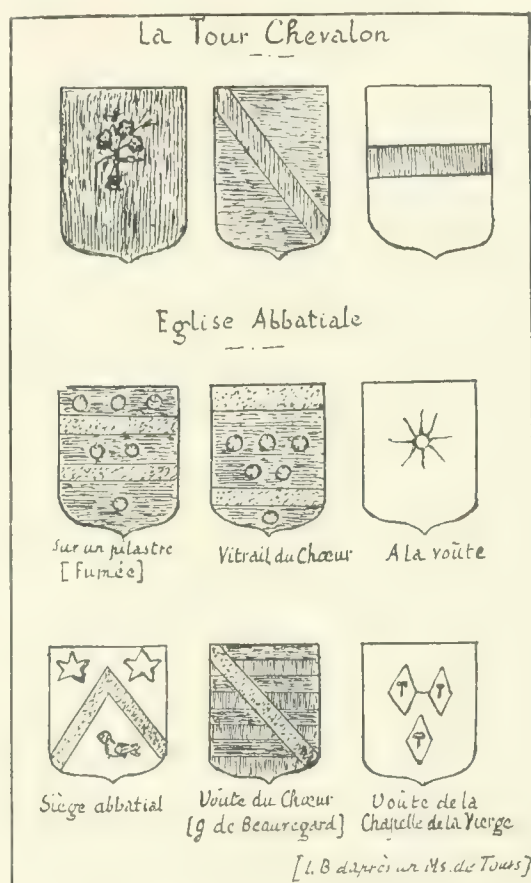 La Tour Chevalon
Eglise Abbatiale
Sur un pilastre
[Fumée]
Vitrail du Chœur
A la voûte
Siège abbatial
Voûte du Chœur
[g de Beauregard]
Voûte de la
Chapelle de la Vierge
[L. B d'après un Ms. de Tours]